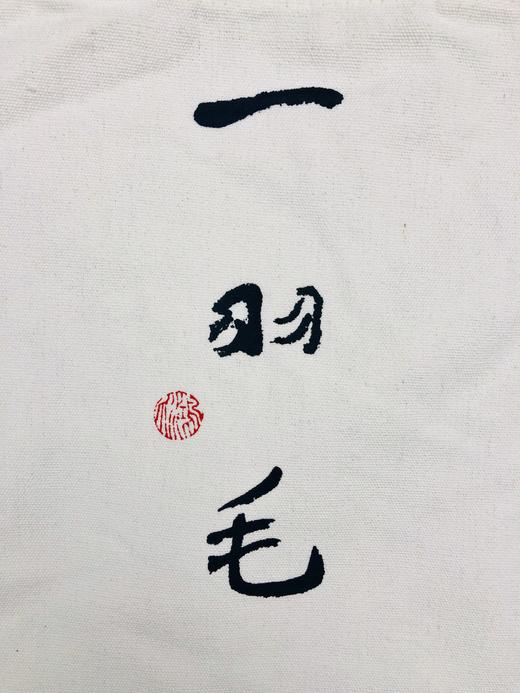 一羽毛